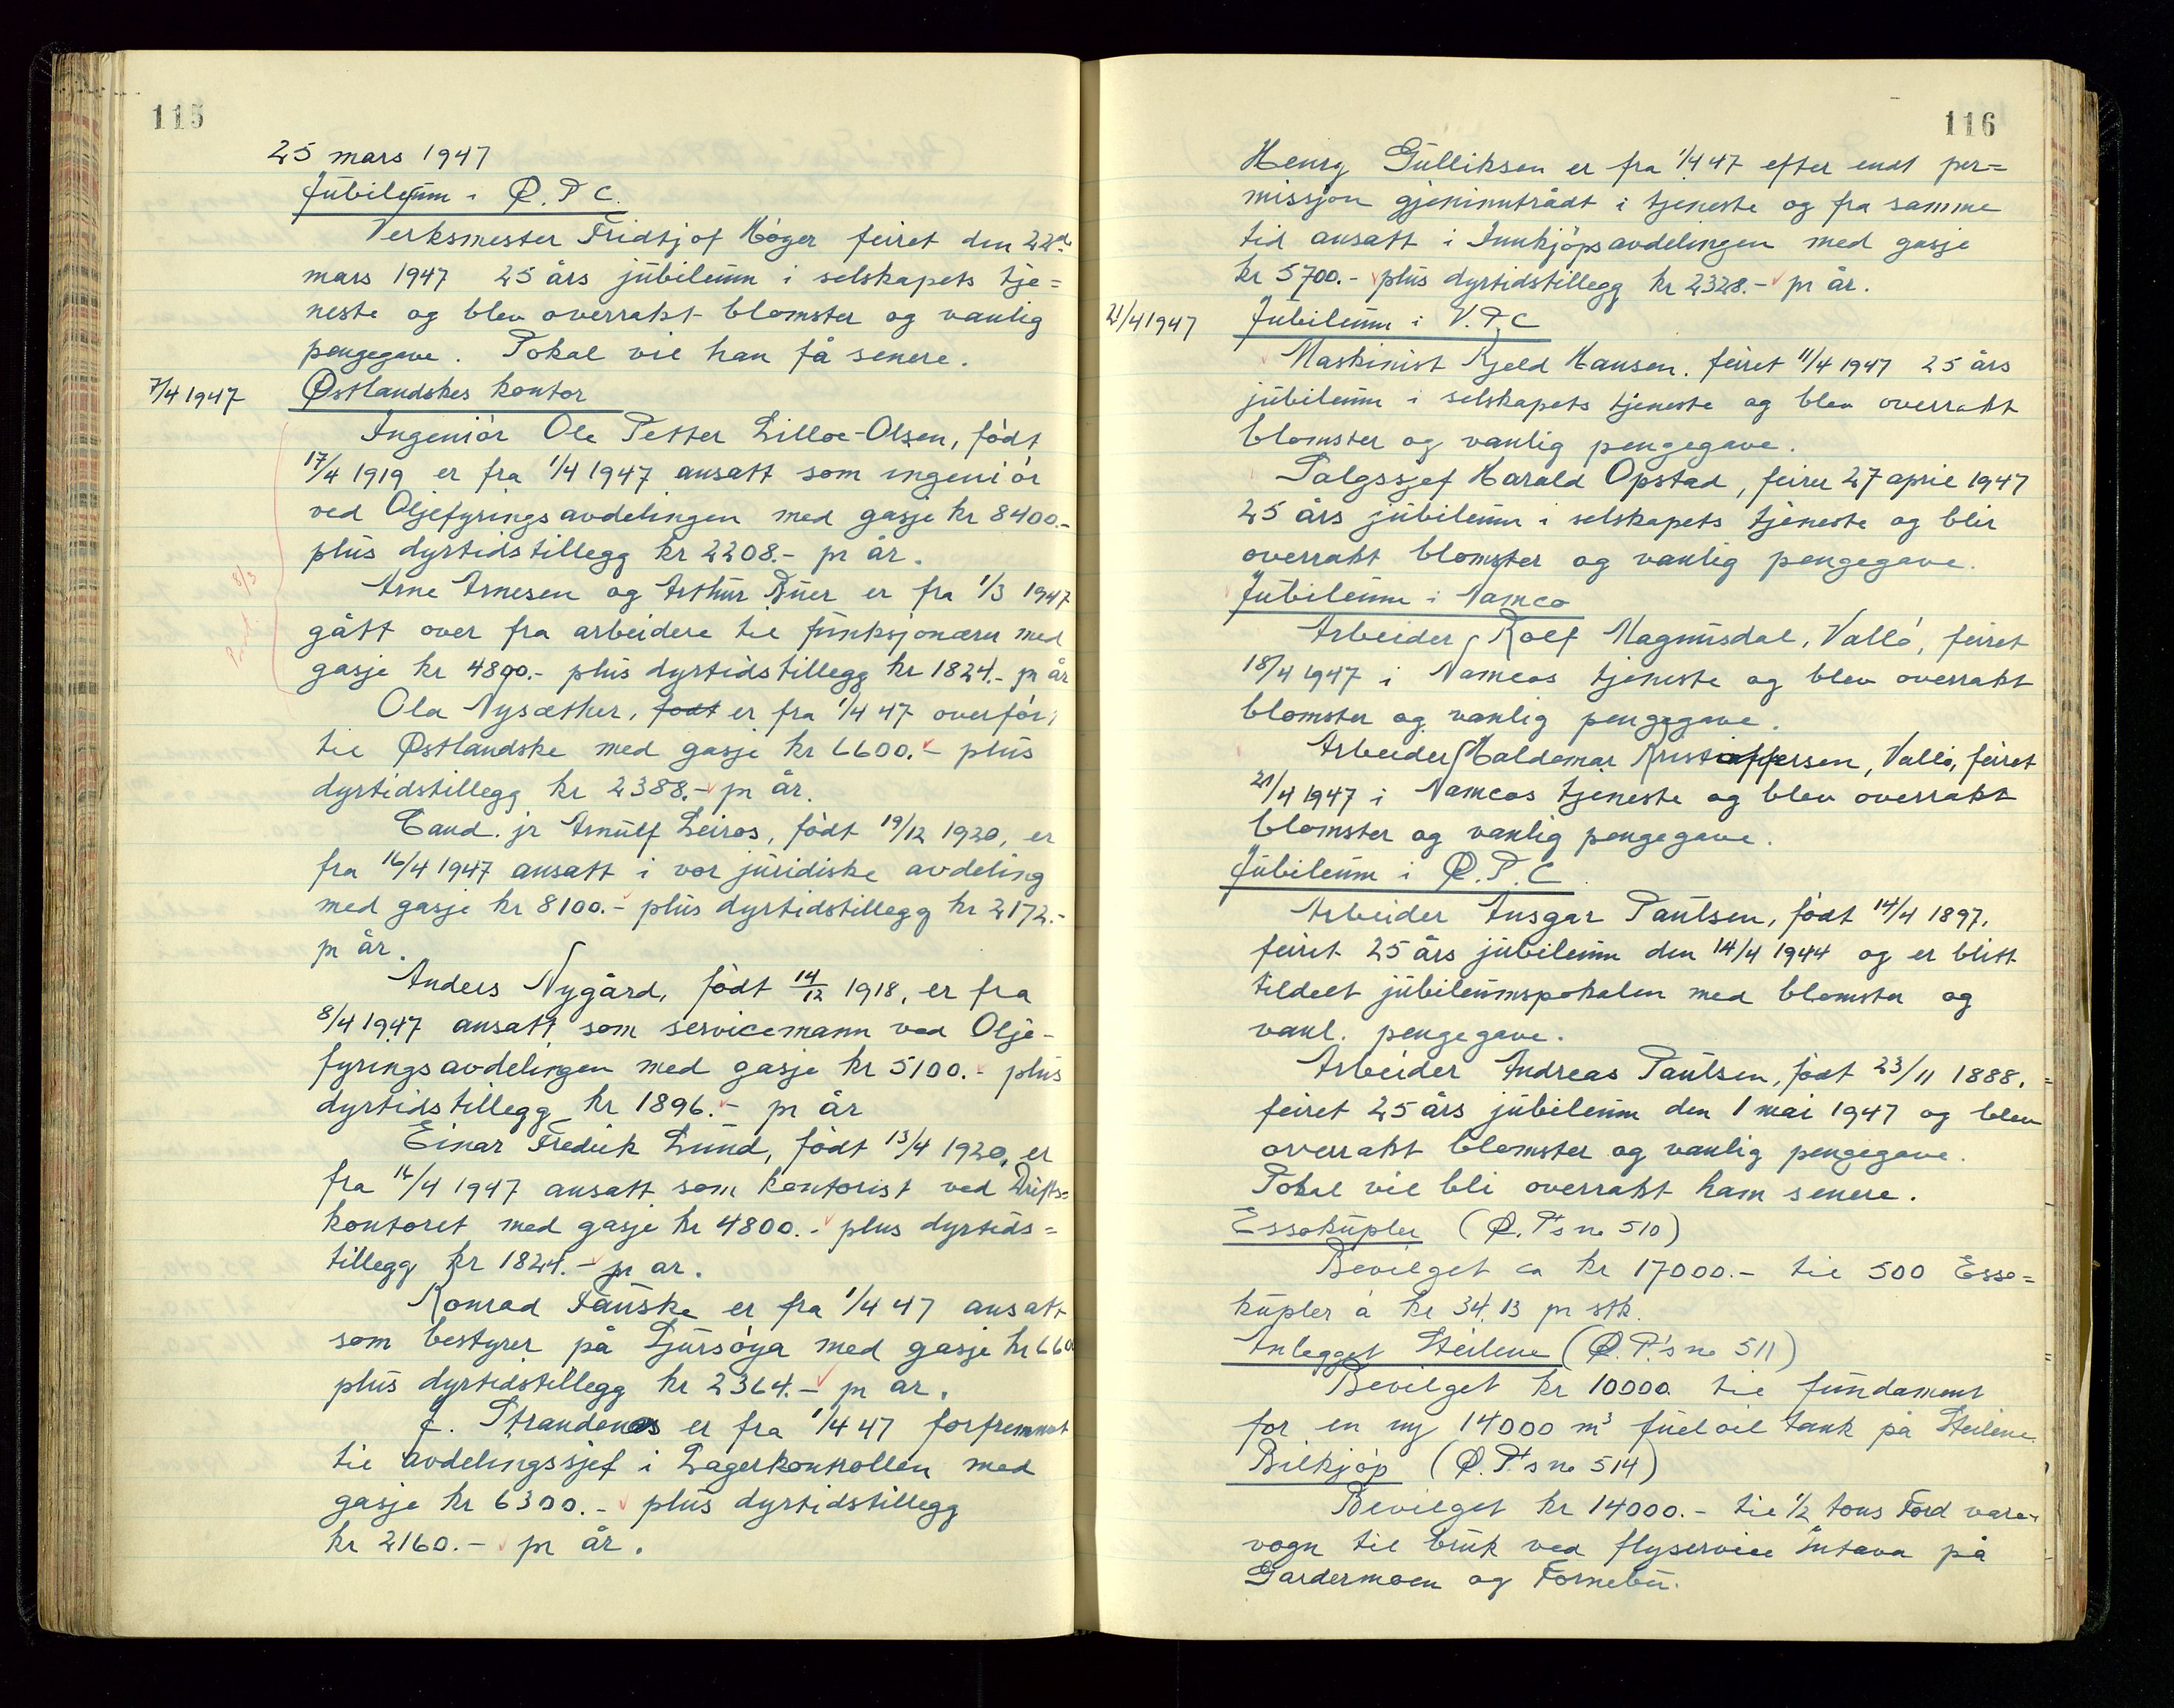 115
25 mars 1947
Jubileum i Ø.P.C.
Verksmester Fridtjof Høger feiret den 22de
mars 1947 25 års jubileum i selskapets tje=
neste og blev overrakt blomster og vanlig
pengegave. Pokal vil han få senere.
7/4 1947 Østlandskes kontor
Ingeniør Ole Petter Lilloe-Olsen, født
17/4 1919 er fra 1/4 1947 ansatt som ingeniør
ved Oljefyringsavdelingen med gasje kr 8400.-
plus dyrtidstillegg kr 2208.- pr år.
Arne Arnesen og Arthur Buer er fra 1/3 1947
gått over fra arbeidere til funksjonærer med
gasje kr 4800.- plus dyrtidstillegg kr 1824.- pr år
Ola Nysæther, født er fra 1/4 47 overfør
til Østlandske med gasje kr 6600.- plus
dyrtidstillegg kr 2388.- pr år.
Cand. jr Arnulf Leiros, født 19/12 1920, er
fra 16/4 1947 ansatt i vor juridiske avdeling
med gasje kr 8100.- plus dyrtidstillegg kr 2172.-
pr år.
Anders Nygård, født 14/12 1918, er fra
8/4 1947 ansatt som servicemann ved Olje-
fyringsavdelingen med gasje kr 5100.- plus
dyrtidstillegg kr 1896.- pr år
Einar Fredrik Lund, født 13/4 1920, er
fra 16/4 1947 ansatt som kontorist ved Drifts=
kontoret med gasje kr 4800.- plus dyrtids=
tillegg kr 1824.- pr ar.
Konrad Fauske er fra 1/4 47 ansatt
som bestyrer på Sjursøya med gasje kr 660
plus dyrtidstillegg kr 2364.- pr ar.
J. Strandenæs er fra 1/4 47 forfremmet
til avdelingssjef i Lagerkontrollen med
gasje kr 6300.- plus dyrtidstillegg
kr 2160.- pr år.
116
Henry Gulliksen er fra 1/4 47 efter endt per=
missjon gjeninntrådt i tjeneste og fra samme
tid ansatt i Innkjøpsavdelingen med gasje
kr 5700.- plus dyrtidstillegg kr 2328.- pr år.
21/4 1947 Jubileum i V.P.C
Maskinist Kjeld Hansen. feiret 11/4 1947 25 års
jubileum i selskapets tjeneste og blev overrakt
blomster og vanlig pengegave.
Salgssjef Harald Opstad, feirer 27 april 1947
25 års jubileum i selskapets tjeneste og blir
overrakt blomster og vanlig pengegave.
Jubileum i Namco
Arbeider, Rolf Magnusdal, Valló, feiret
18/4 1947 i Namcos tjeneste og blev overrakt
blomster og vanlig pengegave.
Arbeider Haldemar Kristoffersen, Valló, feiret
21/4 1947 i Namcos tjeneste og blev overrakt
blomster og vanlig pengegave.
Jubileum i Ø.P.C.
Arbeider Ansgar Paulsen, født 14/4 1897,
feiret 25 års jubileum den 14/4 1944 og er blitt
tildelt jubileumspokalen med blomster og
vanl. pengegave.
Arbeider Andreas Paulsen, født 23/11 1888,
feiret 25 års jubileum den 1 mai 1947 og blev
overrakt blomster og vanlig pengegave.
Pokal vil bli overrakt ham senere.
Essokupler (Ø.P's no 510)
Bevilget ca kr 17000.- til 500 Esso=
kupler á kr 34,13 pr stk.
Anlegget Steilene (Ø.P.'s no 511)
Bevilget kr 10000 til fundament
for en ny 14000 m³ fueloil tank på Steilene
Bilkjøp (Ø.P.'s no 514)
Bevilget kr 14000.- til 1/2 tons Ford vare-
vogn til bruk ved flyservice Intava på
Gardermoen og Fornebu.